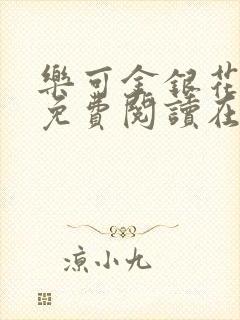 樂可金銀花
免費閱讀在
涼小九